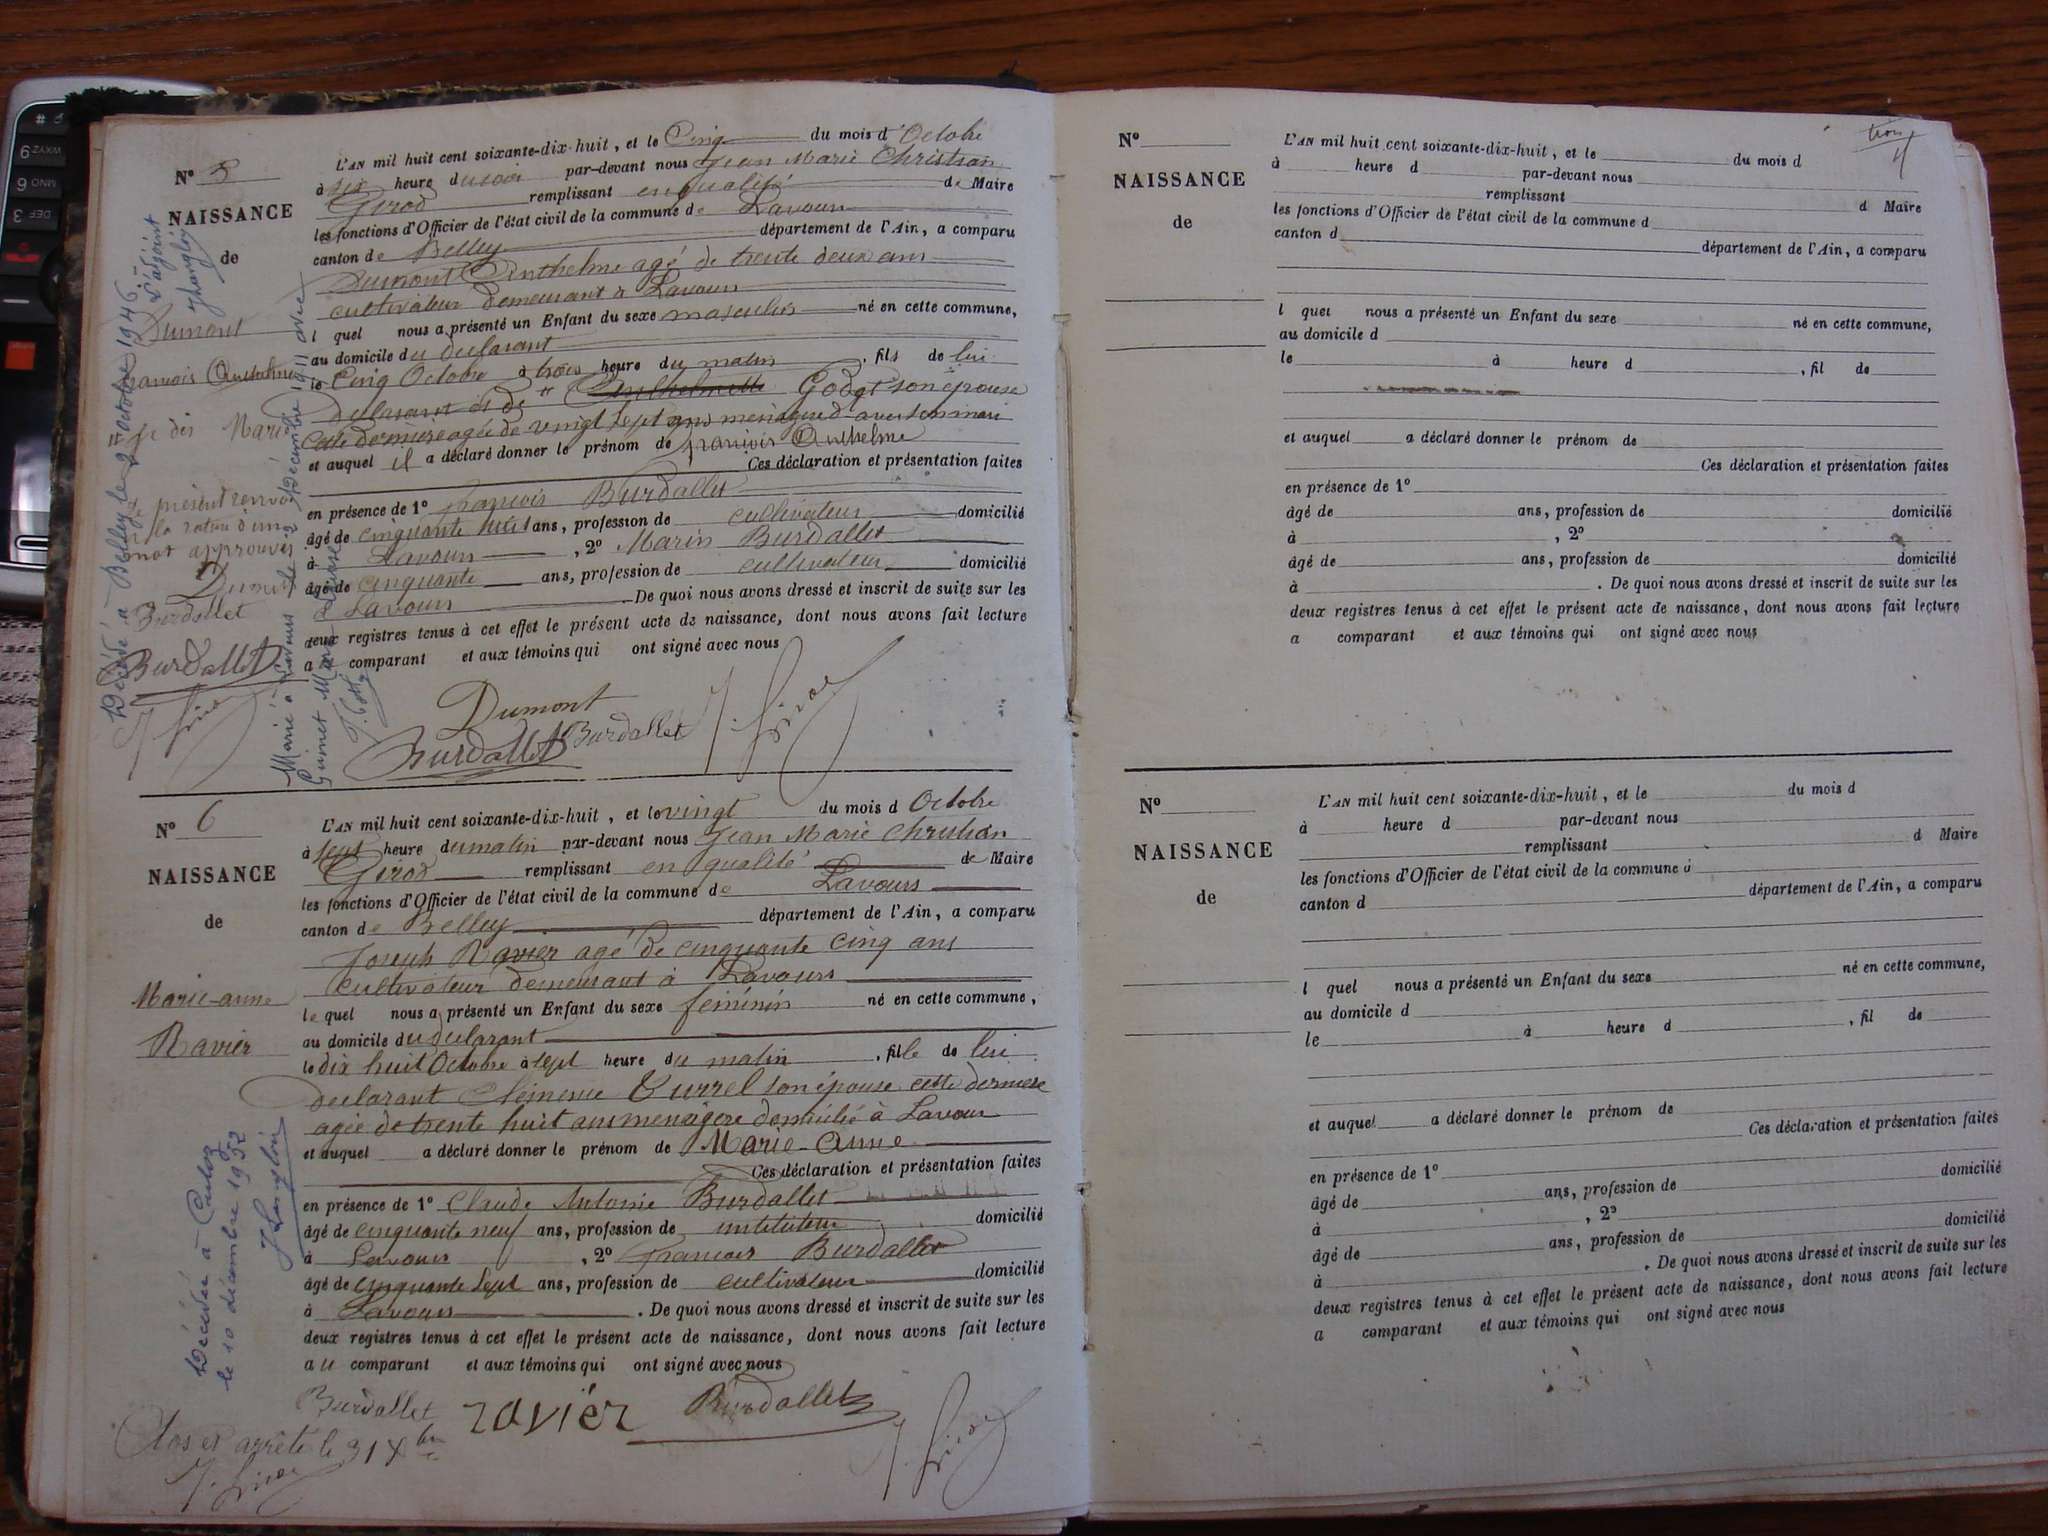 N° 5
NAISSANCE
de
Dumont
François Anthelme
L'AN mil huit cent soixante-dix-huit, et le Cinq du mois d'Octobre
à six heure du soir par-devant nous Jean Marie Christian
Girod remplissant en qualité de Maire
les fonctions d'Officier de l'état civil de la commune de Lavours
canton de Belley département de l'Ain, a comparu
Dumont Anthelme agé de trente deux ans
cultivateur demeurant à Lavours
l quel nous a présenté un Enfant du sexe masculin né en cette commune,
au domicile du declarant
le Cinq Octobre à trois heure du matin, fils de lui
declarant et de Anthelmette Godet son épouse
cette dernière agée de vingt sept ans menagère d avec son mari
et auquel il a déclaré donner le prénom de François Anthelme
Ces déclaration et présentation faites
en présence de 1° François Burdallet
âgé de cinquante huit ans, profession de cultivateur domicilié
à Lavours, 2° Marin Burdallet
âgé de cinquante ans, profession de cultivateur domicilié
à Lavours De quoi nous avons dressé et inscrit de suite sur les
deux registres tenus à cet effet le présent acte de naissance, dont nous avons fait lecture
a comparant et aux témoins qui ont signé avec nous
Dumont
Burdallet Burdallet J. Girod
Marie
le présent renvoi
la rature d'un
mot approuvés
Dumont
Burdallet
Burdallet
J. Girod
Décédé à Belley le 2 octobre 1946
L'adjoint
Marié à Lavours le 2 Décembre 1911 avec
Guimet Marie
N° 6
NAISSANCE
de
Marie-anne
Ravier
L'AN mil huit cent soixante-dix-huit, et le vingt du mois d Octobre
à sept heure du matin par-devant nous Jean Marie Christian
Girod remplissant en qualité de Maire
les fonctions d'Officier de l'état civil de la commune de Lavours
canton de Belley département de l'Ain, a comparu
Joseph Ravier agé de cinquante cinq ans
cultivateur demeurant à Lavours
le quel nous a présenté un Enfant du sexe féminin né en cette commune,
au domicile du declarant
le dix huit Octobre à sept heure du matin, fille de lui
declarant Clémence Turrel son épouse cette dernière
agée de trente huit ans menagere domicilié à Lavours
et auquel a déclaré donner le prénom de Marie-Anne
Ces déclaration et présentation faites
en présence de 1° Claude Antoine Burdallet
âgé de cinquante neuf ans, profession de instituteur domicilié
à Lavours, 2° François Burdallet
âgé de cinquante sept ans, profession de cultivateur domicilié
à Lavours. De quoi nous avons dressé et inscrit de suite sur les
deux registres tenus à cet effet le présent acte de naissance, dont nous avons fait lecture
au comparant et aux témoins qui ont signé avec nous
Burdallet ravier Burdallet J. Girod
Clos et arrêté le 31 Xbre
J. Girod
Décédée à Culoz
le 10 décembre 1952
N°
NAISSANCE
de
L'AN mil huit cent soixante-dix-huit, et le du mois d
à heure d par-devant nous
remplissant d Maire
les fonctions d'Officier de l'état civil de la commune d
canton d département de l'Ain, a comparu
l quel nous a présenté un Enfant du sexe né en cette commune,
au domicile d
le à heure d, fil de
et auquel a déclaré donner le prénom de
Ces déclaration et présentation faites
en présence de 1°
âgé de ans, profession de domicilié
à, 2°
âgé de ans, profession de domicilié
à. De quoi nous avons dressé et inscrit de suite sur les
deux registres tenus à cet effet le présent acte de naissance, dont nous avons fait lecture
a comparant et aux témoins qui ont signé avec nous
N°
NAISSANCE
de
L'AN mil huit cent soixante-dix-huit, et le du mois d
à heure d par-devant nous
remplissant d Maire
les fonctions d'Officier de l'état civil de la commune d
canton d département de l'Ain, a comparu
l quel nous a présenté un Enfant du sexe né en cette commune,
au domicile d
le à heure d, fil de
et auquel a déclaré donner le prénom de
Ces déclaration et présentation faites
en présence de 1°
âgé de ans, profession de domicilié
à, 2°
âgé de ans, profession de domicilié
à. De quoi nous avons dressé et inscrit de suite sur les
deux registres tenus à cet effet le présent acte de naissance, dont nous avons fait lecture
a comparant et aux témoins qui ont signé avec nous